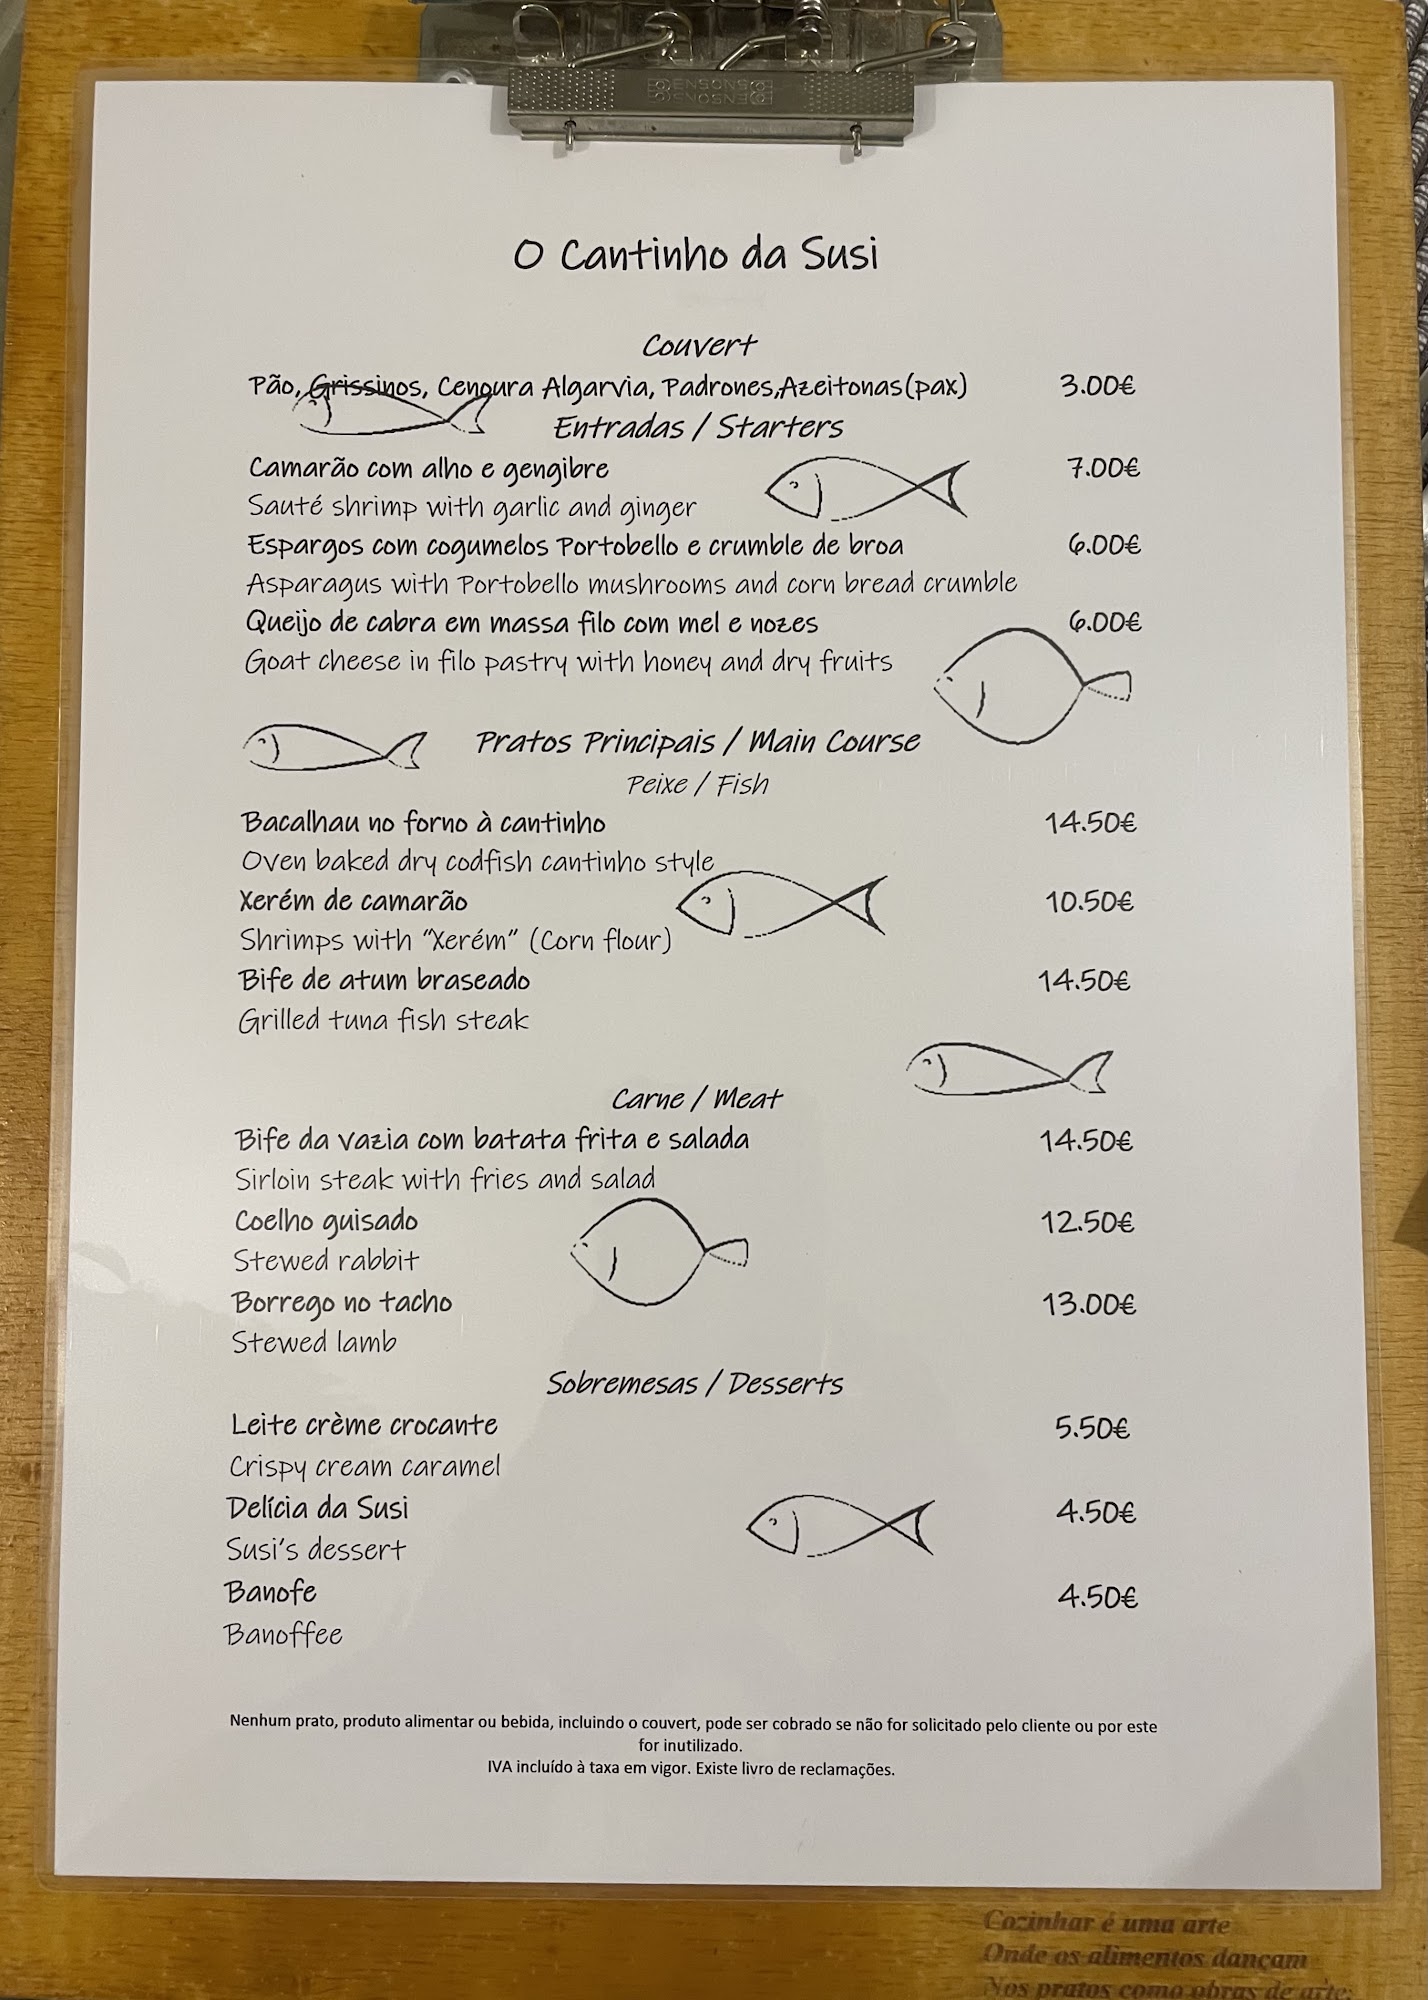 O Cantinho da Susi
Couvert
Pão, Grissinos, Cenoura Algarvia, Padrones,Azeitonas(pax) 3.00€
Entradas / Starters
Camarão com alho e gengibre 7.00€
Sauté shrimp with garlic and ginger
Espargos com cogumelos Portobello e crumble de broa 6.00€
Asparagus with Portobello mushrooms and corn bread crumble
Queijo de cabra em massa filo com mel e nozes 6.00€
Goat cheese in filo pastry with honey and dry fruits
Pratos Principais / Main Course
Peixe / Fish
Bacalhau no forno à cantinho 14.50€
Oven baked dry codfish cantinho style
Xerém de camarão 10.50€
Shrimps with "Xerém" (Corn flour)
Bife de atum braseado 14.50€
Grilled tuna fish steak
Carne / Meat
Bife da vazia com batata frita e salada 14.50€
Sirloin steak with fries and salad
Coelho guisado 12.50€
Stewed rabbit
Borrego no tacho 13.00€
Stewed lamb
Sobremesas / Desserts
Leite crème crocante 5.50€
Crispy cream caramel
Delícia da Susi 4.50€
Susi's dessert
Banofe 4.50€
Banoffee
Nenhum prato, produto alimentar ou bebida, incluindo o couvert, pode ser cobrado se não for solicitado pelo cliente ou por este
for inutilizado.
IVA incluído à taxa em vigor. Existe livro de reclamações.
Cozinhar é uma arte
Onde os alimentos dançam
Nos pratos como obras de arte.